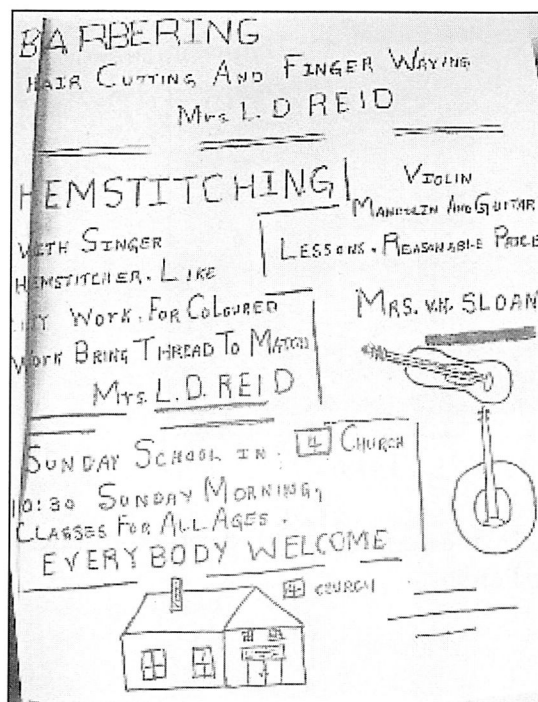 BARBERING
HAIR CUTTING AND FINGER WAVING
Mrs L. D REID
HEMSTITCHING
WITH SINGER
HEMSTITCHER. LIKE
WORK. FOR COLOURED
WORK BRING THREAD TO MATCH
Mrs. L. D. REID
VIOLIN
MANDOLIN AND GUITAR
LESSONS. REASONABLE PRICE
MRS. V.H. SLOAN
SUNDAY SCHOOL IN CHURCH
10:30 SUNDAY MORNING,
CLASSES FOR ALL AGES.
EVERYBODY WELCOME
CHURCH